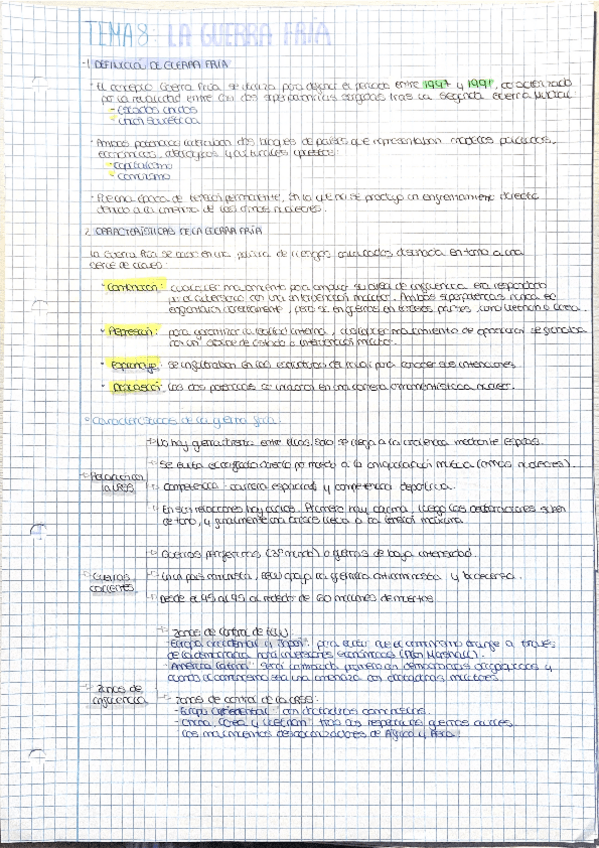 TEMA 8: LA GUERRA FRÍA
1. DEFINICIÓN DE GUERRA FRÍA
· El concepto Guerra Fría se utiliza para definir el periodo entre 1947 y 1991, caracterizado
por la rivalidad entre las dos superpotencias surgidas tras la Segunda Guerra Mundial
- Estados Unidos
- Unión Soviética
· Ambas potencias lideraban dos bloques de países que representaban modelos políticos,
económicos, ideológicos y culturales opuestos:
- capitalismo
- comunismo
· Fue una época de tensión permanente, en la que no se produjo un enfrentamiento directo
debido a la amenaza de las armas nucleares.
2. CARACTERÍSTICAS DE LA GUERRA FRÍA
La Guerra Fría se basó en una política de riesgos calculados diseñada en torno a una
serie de claves:
· Contención: cualquier movimiento para ampliar su área de influencia era respondido
por el adversario con una intervención militar. Ambas superpotencias nunca se
enfrentaron directamente, pero sí en guerras en terceros países, como Vietnam o Corea.
· Represión: para garantizar la estabilidad interna, cualquier movimiento de oposición se
con un golpe de estado o intervención militar.
· Espionaje: se infiltraban en las estructuras del rival para conocer sus intenciones.
· Disuasión: las dos potencias se en una carrera armamentística nuclear.
· Características de la guerra fría:
No hay guerra directa entre ellas. Solo se llega a la violencia mediante espías.
Relación con la URSS
Se evita el conflicto directo por miedo a la aniquilación mutua (armas nucleares).
Competencia: carrera espacial y competencia deportiva.
En sus relaciones hay ciclos. Primero hay calma, luego las declaraciones suben
de tono, y finalmente una crisis lleva a la tensión máxima
Guerras periféricas (3º mundo) o guerras de baja intensidad.
Guerras calientes
En un país comunista, EEUU apoya la guerrilla anticomunista y viceversa.
Desde el 45 al 95 alrededor de 60 millones de muertos
Zonas de influencia
Zonas de control de EEUU:
- "Europa occidental y Japón": para evitar que el comunismo triunfe a través
de la democracia, hará inversiones económicas (Plan Marshall).
- "América Latina": será primero en democracias y
cuando el comunismo sea una amenaza con dictaduras militares.
Zonas de control de la URSS:
- "Europa oriental" con dictaduras comunistas.
- "China, Corea y Vietnam": tras sus respectivas guerras civiles.
Los movimientos descolonizadores de África y Asia.